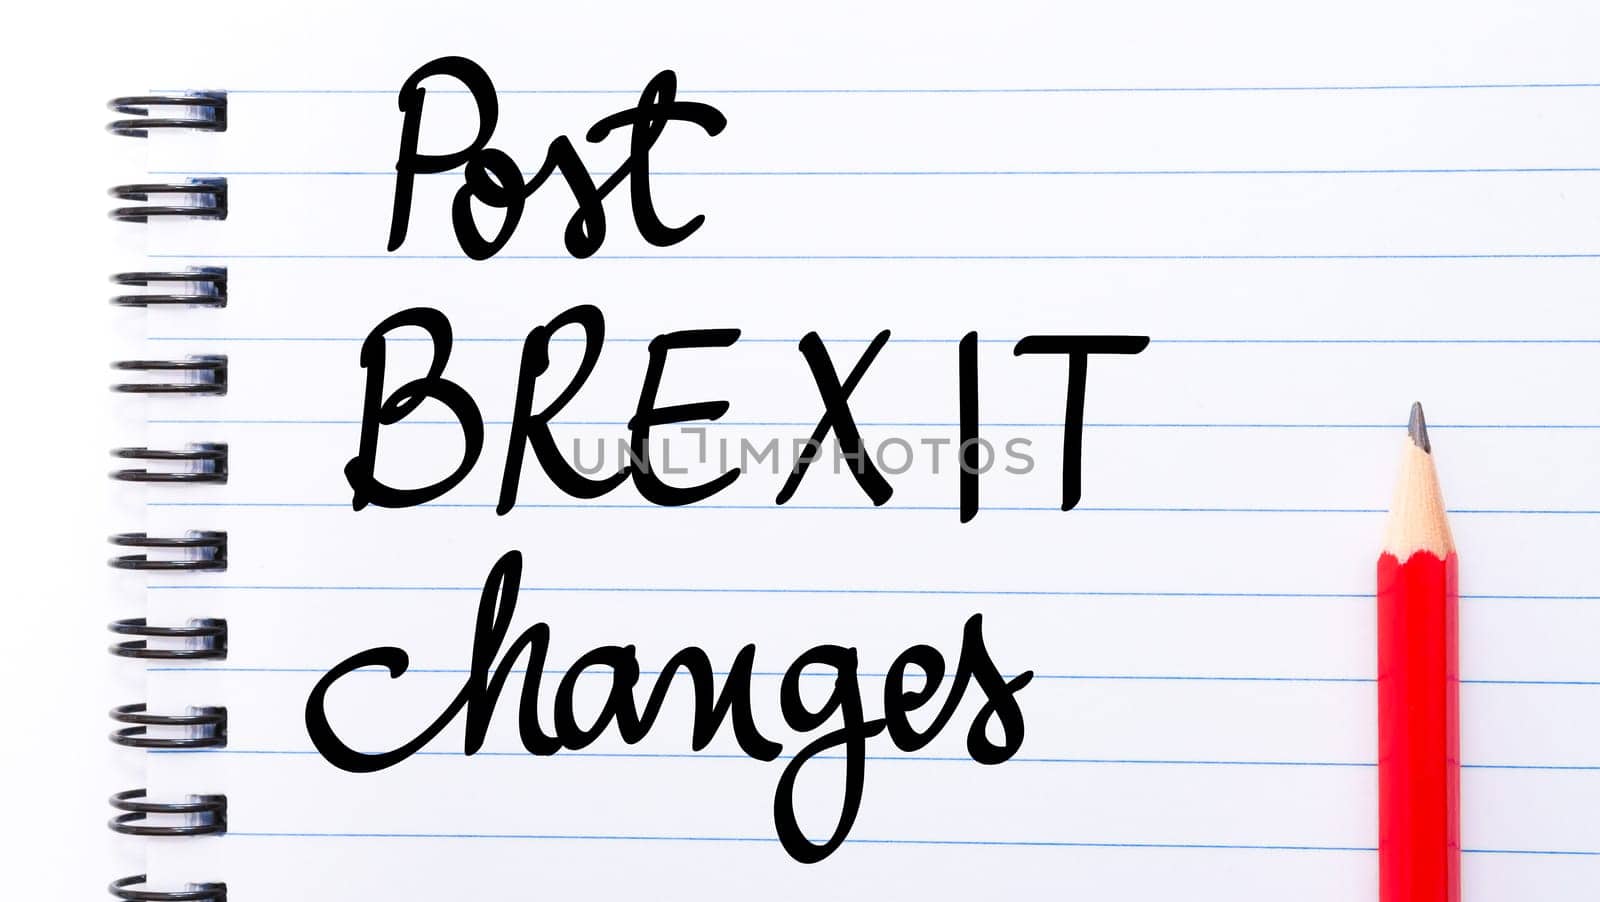 Post
BREXIT
UNLIMPHOTOS
Changes